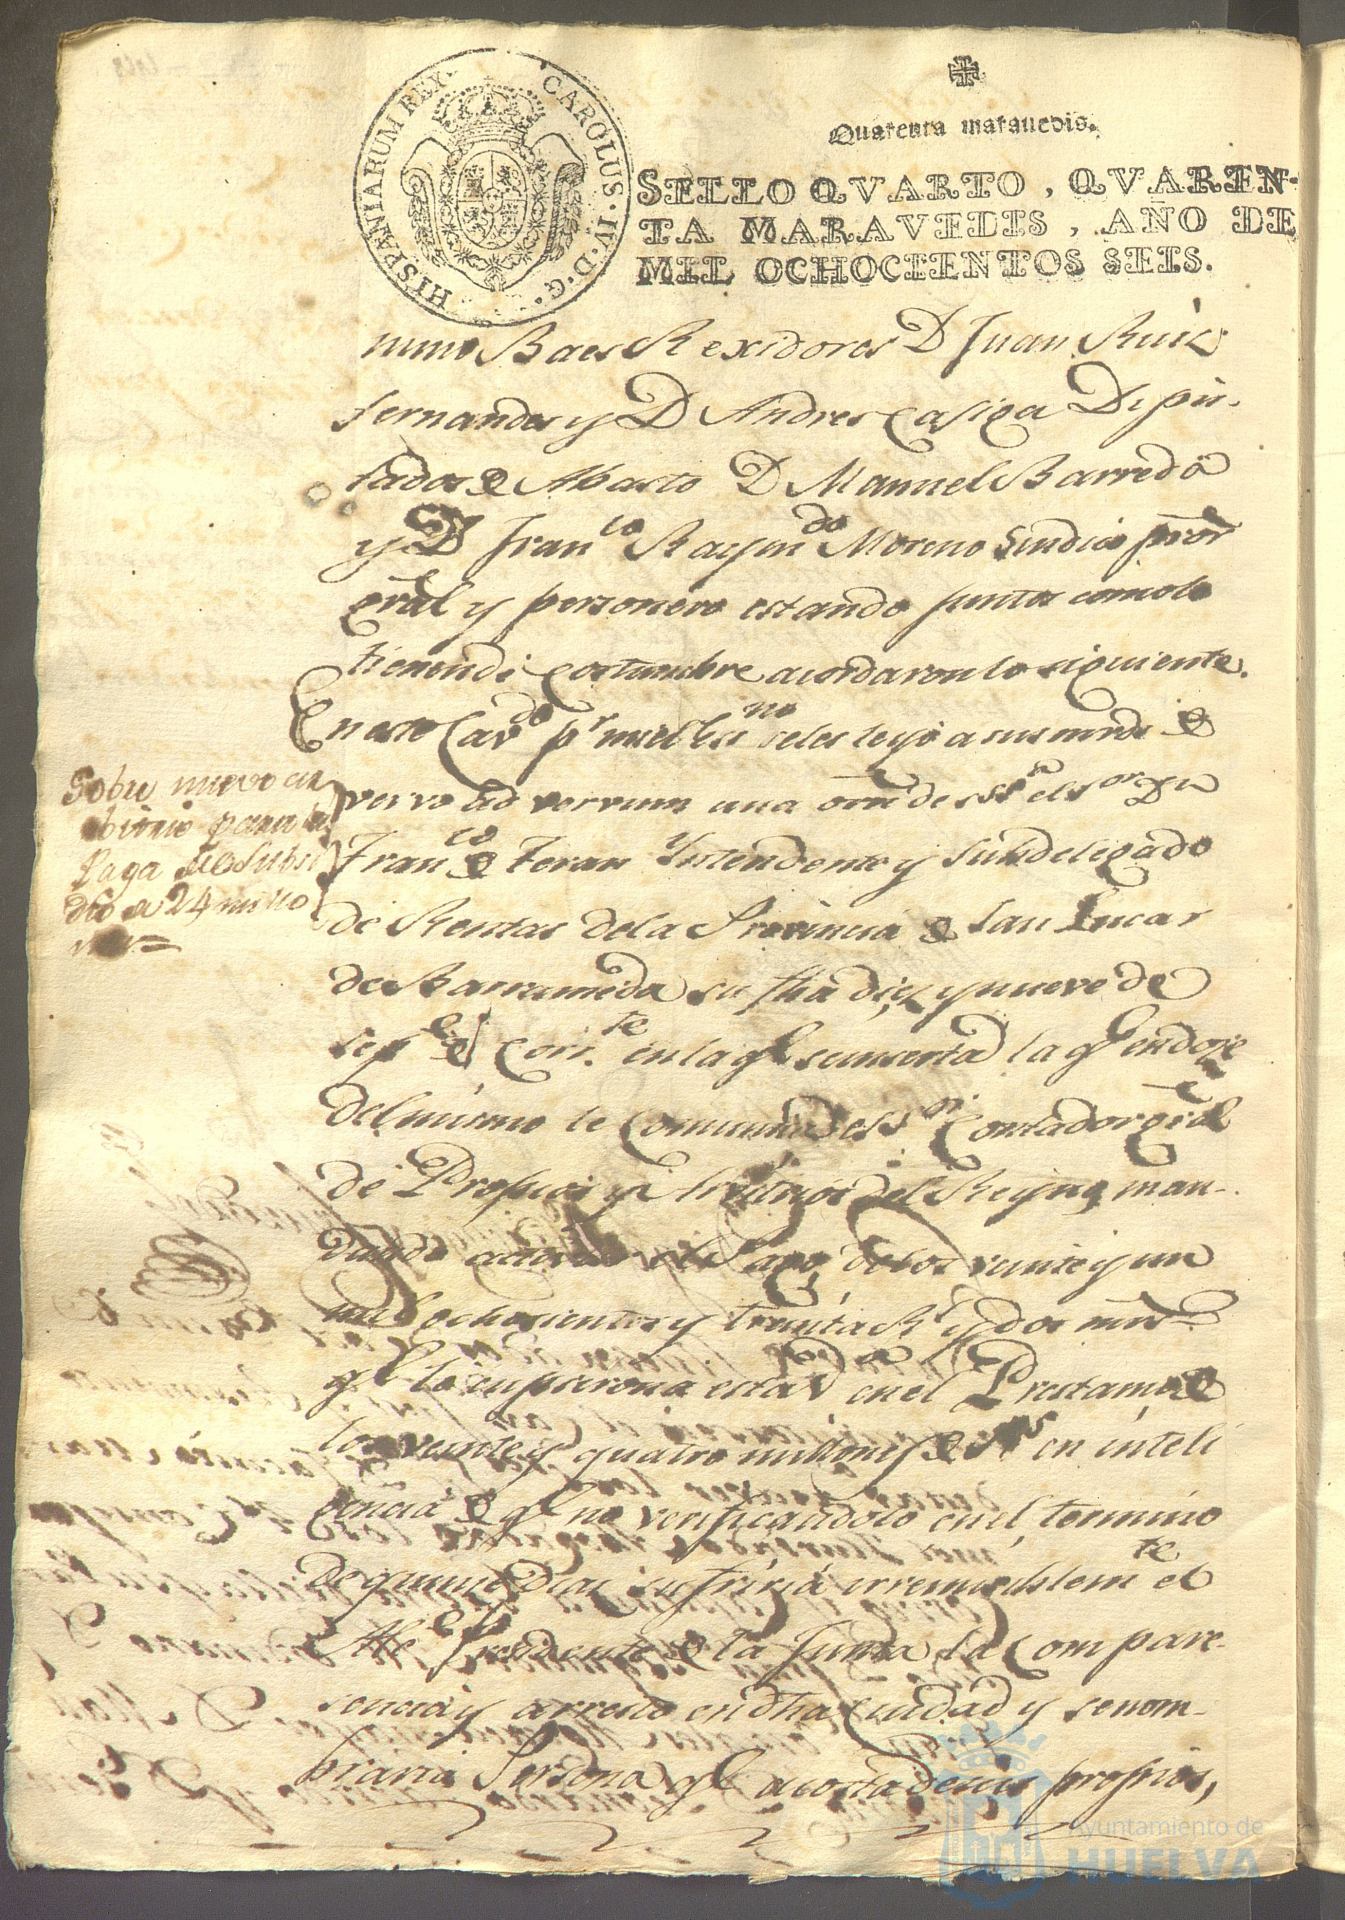 HISPANIARUM REX. CAROLUS. IV. D. G.
Quarenta maravedis.
SELLO QVARTO, QVAREN-
TA MARAVEDIS, AÑO DE
MIL OCHOCIENTOS SEIS.
nimo Baes Rexidores D Juan Ruiz
fernandes y D Andres Casiga Dipu-
tados de Abasto D Manuel Barreda
y D Franco Raymdo Moreno Sindico pror
gral y personero estando juntos como lo
tienen di Costumbre acordaron lo siguiente.
En este Cavdo pr mi el Essno se les leyo a sus mrds de
vervo ad vervum una orn de SSa el Sor Dn
Franco de Teran Yntendente y Subdelegado
de Rentas de la Provincia de San Lucar
de Barrameda su fha diez y nueve de
Sepe del Corrte en la ql se inserta la ql en doze
del mismo le Comunica el Sor Contador gral
de Propios y Arvitrios del Reyno, man-
dando el Pago de los veinte y un
mil ochosientos y treinta Rs y dos mrs
ql le cupieron a esta Va en el Prestamo de
los veinte y quatro millones de Rs en inteli
gencia de ql no verificandolo en el termino
de quinse Dias sufriria irremisiblemte el
Alce Presidente de la Junta la Compare-
sencia y arresto en dha Ciudad y se nom-
braria Persona ql a costa de sus propios,
Sobre nuevo ar
bitrio para la
Paga del Subsi
dio a 24 millo
nes
Ayuntamiento de
HUELVA